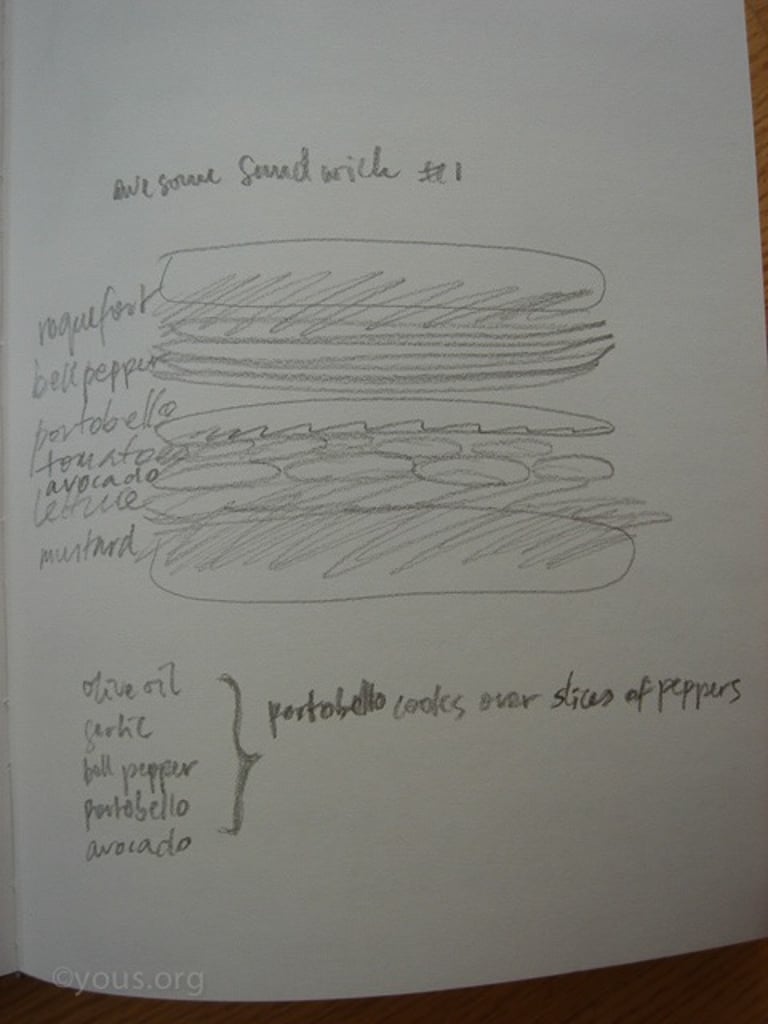 awesome Sandwich #1
roquefort
bell pepper
portobello
tomatoes
avocado
lettuce
mustard
olive oil
garlic
bell pepper
portobello
avocado
portobello cooks over slices of peppers
©yous.org